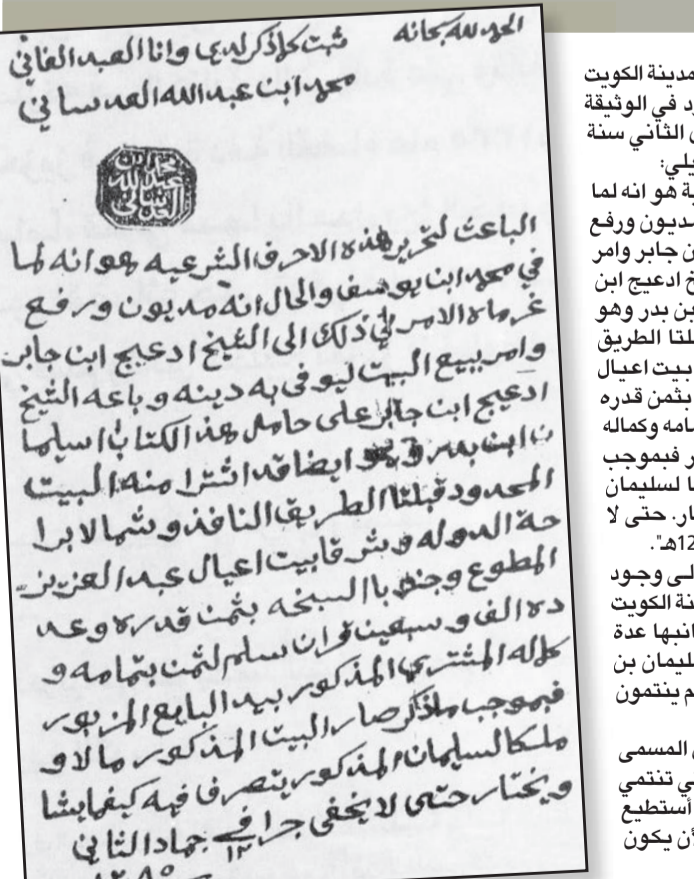 الحمد لله سبحانه
ثبت كلما ذكر لدي وانا العبد الفاني
محمد ابن عبد الله العدساني
الباعث لتحرير هذه الاحرف الشرعيه هو انه لما
في محمد ابن يوسف والحال انه مديون ورفع
غرماه الامر في ذلك الى الشيخ ادعيج ابن جابر
وامر ببيع البيت ليوفى به دينه وباعه الشيخ
ادعيج ابن جابر على حامل هذا الكتاب اسليما
ن ابن بدر وهو ايضا قد اشترا منه البيت
المحدود قبلتا الطريق النافذ وشمالا برا
حة الدوله وشرقا بيت اعيال عبد العزيز
المطوع وجنوبا السبخه بثمن قدره وعد
ده الف وسبعين قران سلم لثمن بتمامه و
كماله المشتري المذكور بيد البايع المزبور
فبموجب ماذكر صار البيت المذكور مالا و
ملكا لسليمان المذكور يتصرف فيه كيفما يشا
ويختار حتى لا يخفى جرا في ١٢ جماد الثاني
مدينة الكويت
د في الوثيقة
الثاني سنة
يلي:
ية هو انه لما
مديون ورفع
ن جابر وامر
خ ادعيج ابن
بن بدر وهو
لتا الطريق
بيت اعيال
بثمن قدره
مامه وكماله
ر فبموجب
ا لسليمان
ار. حتى لا
12هـ".
لى وجود
نة الكويت
انبها عدة
ليمان بن
م ينتمون
المسمى
ي تنتمي
أستطيع
أن يكون